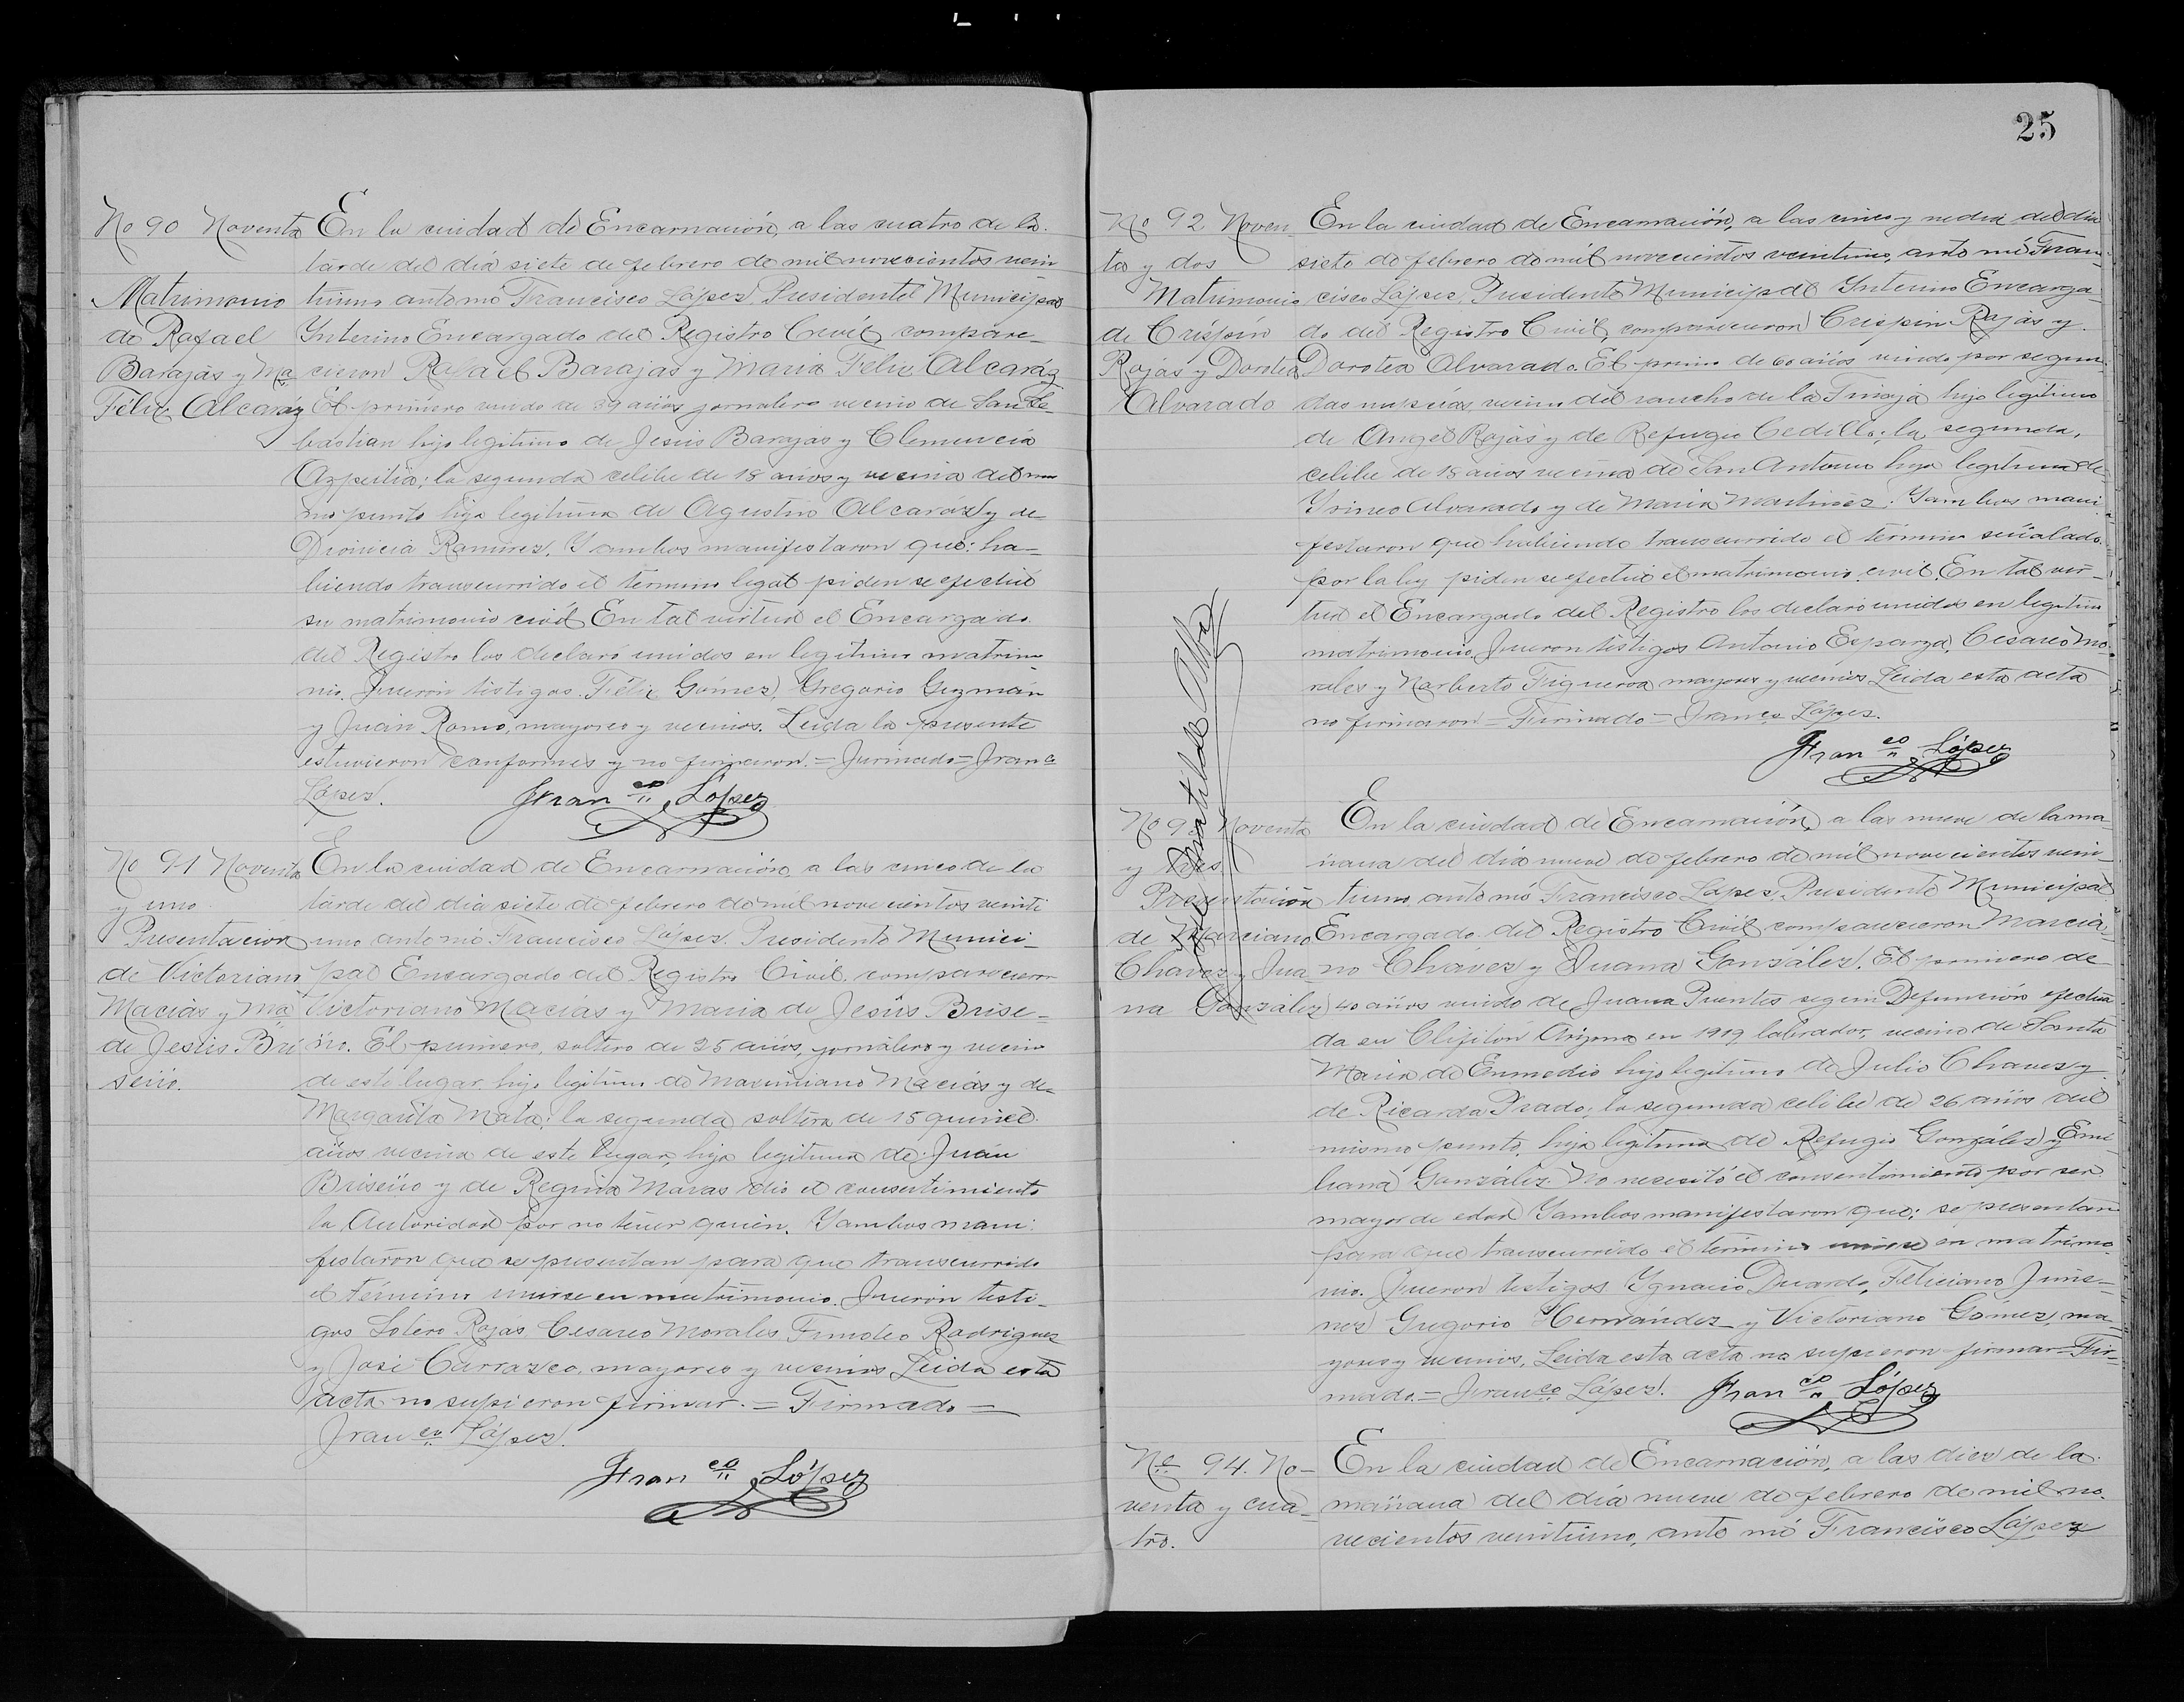 25
No 90 Noventa
Matrimonio
de Rafael
Barajas y Ma
Félix Alcaráz
En la ciudad de Encarnación, a las cuatro de la
tarde del día siete de febrero de mil novecientos vein
tiuno ante mó Francisco López, Presidente Municipal
Interino Encargado del Registro Civil, compare-
cieron Rafael Barajas y Maria Felix Alcaráz
El primero viudo de 39 años jornalero vecino de San Se-
bastian hijo legítimo de Jesús Barajas y Clemencia
Azpeitia; la segunda celibe de 18 años y vecina del mis
mo punto hija legítima de Agustín Alcaráz y de
Dionicia Ramírez. Y ambos manifestaron que: ha-
biendo transcurrido el término legal piden se efectúe
su matrimonio civil En tal virtud el Encargado
del Registro los declaró unidos en legítimo matrimo-
nio. Fueron testigos Félix Gómez, Gregorio Guzmán
y Juán Romo, mayores y vecinos. Leida la presente
estuvieron conformes y no firmaron. = Firmado = Franco
López. Franco López
No 91 Noventa
y uno
Presentación
de Victoriano
Macías y Ma
de Jesús Bri
seño.
En la ciudad de Encarnación, a las cinco de la
tarde del día siete de febrero de mil novecientos veinti
uno ante mó Francisco López. Presidente Munici-
pal Encargado del Registro Civil. comparecieron
Victoriano Macías y Maria de Jesús Brise-
ño. El primero, soltero de 25 años, jornalero y vecino
de este lugar, hijo legítimo de Maximiano Macías y de
Margarita Mata; la segunda soltera de 15 quince
años vecina de este lugar, hija legítima de Juán
Briseño y de Regina Mavas dio el consentimiento
la Autoridad por no tener quién. Y ambos mani-
festaron que se presentan para que transcurrido
el término unirse en matrimonio. Fueron testi-
gos Sotero Rojas Cesareo Morales Timoteo Rodriguez
y José Carrasco, mayores y vecinos Leida esta
acta no supieron firmar. = Firmado =
Franco López.
Franco López
No 92 Noven-
ta y dos
Matrimonio
de Crispín
Rojas y Dorotea
Alvarado
En la ciudad de Encarnación, a las cinco y media del día
siete de febrero de mil novecientos veintiuno, ante mó Fran-
cisco López, Presidente Municipal Interino Encarga-
do del Registro Civil, comparecieron Crispin Rojas y
Dorotea Alvarado. El primo de 60 años viudo por segun-
das nupcias, vecino del rancho de la Tinaja hijo legítimo
de Angel Rojas y de Refugio Cedillo; la segunda,
celibe de 18 años vecina de San Antonio hija legítima de
Irineo Alvarado y de Maria Martinez. Y ambos mani-
festaron que habiendo transcurrido el término señalado
por la ley piden se efectúe el matrimonio civil. En tal vir-
tud el Encargado del Registro los declaró unidos en legítimo
matrimonio. Fueron testigos Antonio Esparza, Cesareo Mo-
rales y Norberto Figueroa mayores y vecinos Leida esta acta
no firmaron = Firmado = Franco López.
Franco López
No 93 Noventa
y tres.
Presentación
de Marciano
Chavez y Jua
na González
Matilde
En la ciudad de Encarnación, a las nueve de la ma-
ñana del día nueve de febrero de mil novecientos vein-
tiuno, ante mó Francisco López, Presidente Municipal
Encargado del Registro Civil comparecieron Marcia-
no Chávez y Juana González. El primero de
40 años viudo de Juana Puentes según Defunción efectua
da en Clifiton Arizona en 1919 labrador, vecino de Santa
Maria de Enmedio hijo legítimo de Julio Chavez y
de Ricarda Prado; la segunda celibe de 26 años del
mismo punto, hija legítima de Refugio González y Emi-
liana González. No necesitó el consentimiento por ser
mayor de edad Y ambos manifestaron que: se presentan
para que transcurrido el término unirse en matrimo-
nio. Fueron testigos Ygnacio Duardo, Feliciano Jimé-
nez Gregorio Hernández y Victoriano Gómez, ma-
yores y vecinos, Leida esta acta no supieron firmar = Fir-
mado. = Franco López. Franco López
No 94. No-
venta y cua-
tro.
En la ciudad de Encarnación, a las diez de la
mañana del día nueve de febrero de mil no-
vecientos veintiuno, ante mó Francisco López